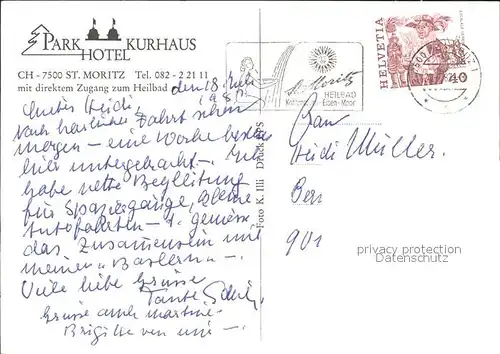 PARK KURHAUS
HOTEL
CH - 7500 ST. MORITZ Tel. 082 - 2 21 11
mit direktem Zugang zum Heilbad
den 18. Juli
Heidi,
Nach herrlicher Fahrt
morgen - eine Woche bestens
hier untergebracht.
habe nette Begleitung
für Spaziergänge, kleine
Autofahrten - u. geniesse
das Zusammensein mit
meinen "Baslern" -
Viele liebe Grüsse
Tante
Grüsse auch
Brigitte von mir -
Foto K. Illi Druck
St. Moritz
HEILBAD
Eisen - Moor
HELVETIA
40
Frau
Heidi Müller.
Bern
901
privacy protection
AnsichtskartenCenter